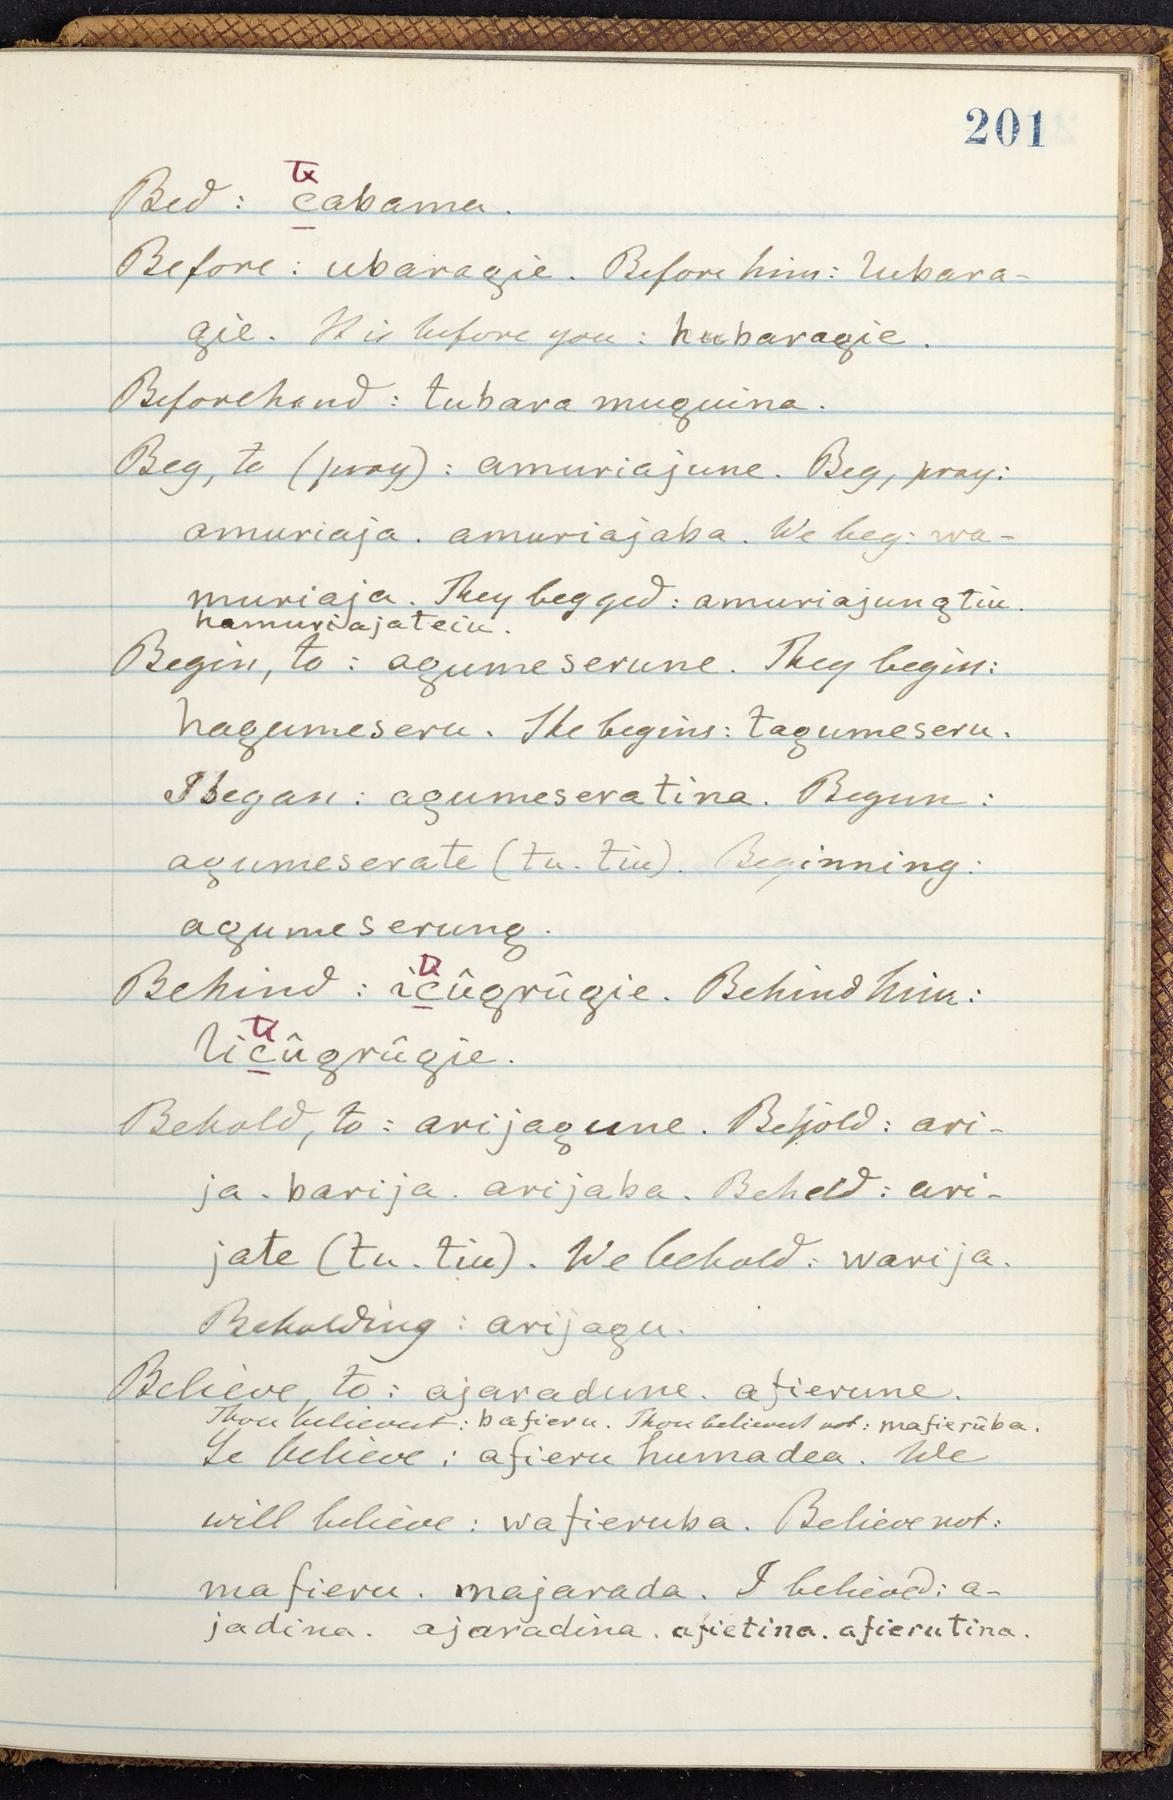 201
tx
Bed: cabama.
Before: ubaragie. Before him: lubara-
gie. It is before you: hubaragie.
Beforehand: tubara muguina.
Beg, to (pray): amuriajune. Beg, pray:
amuriaja. amuriajaba. We beg: wa-
muriaja. They begged: amuriajungtiu.
hamuriajateiu.
Begin, to: agumeserune. They begin:
hagumeseru. She begins: tagumeseru.
I began: agumeseratina. Begun:
agumeserate (tu. tiu). Beginning:
agumeserung.
tx
Behind: icûgrûgie. Behind him:
tx
licûgrûgie.
Behold, to: arijagune. Behold: ari-
ja. barija. arijaba. Beheld: ari-
jate (tu. tiu). We behold: warija.
Beholding: arijagu.
Believe, to: ajaradune. afierune.
Thou believest: bafieru. Thou believest not: mafierûba.
Ye believe: afieru humadea. We
will believe: wafieruba. Believe not:
mafieru. majarada. I believed: a-
jadina. ajaradina. afietina. afierutina.